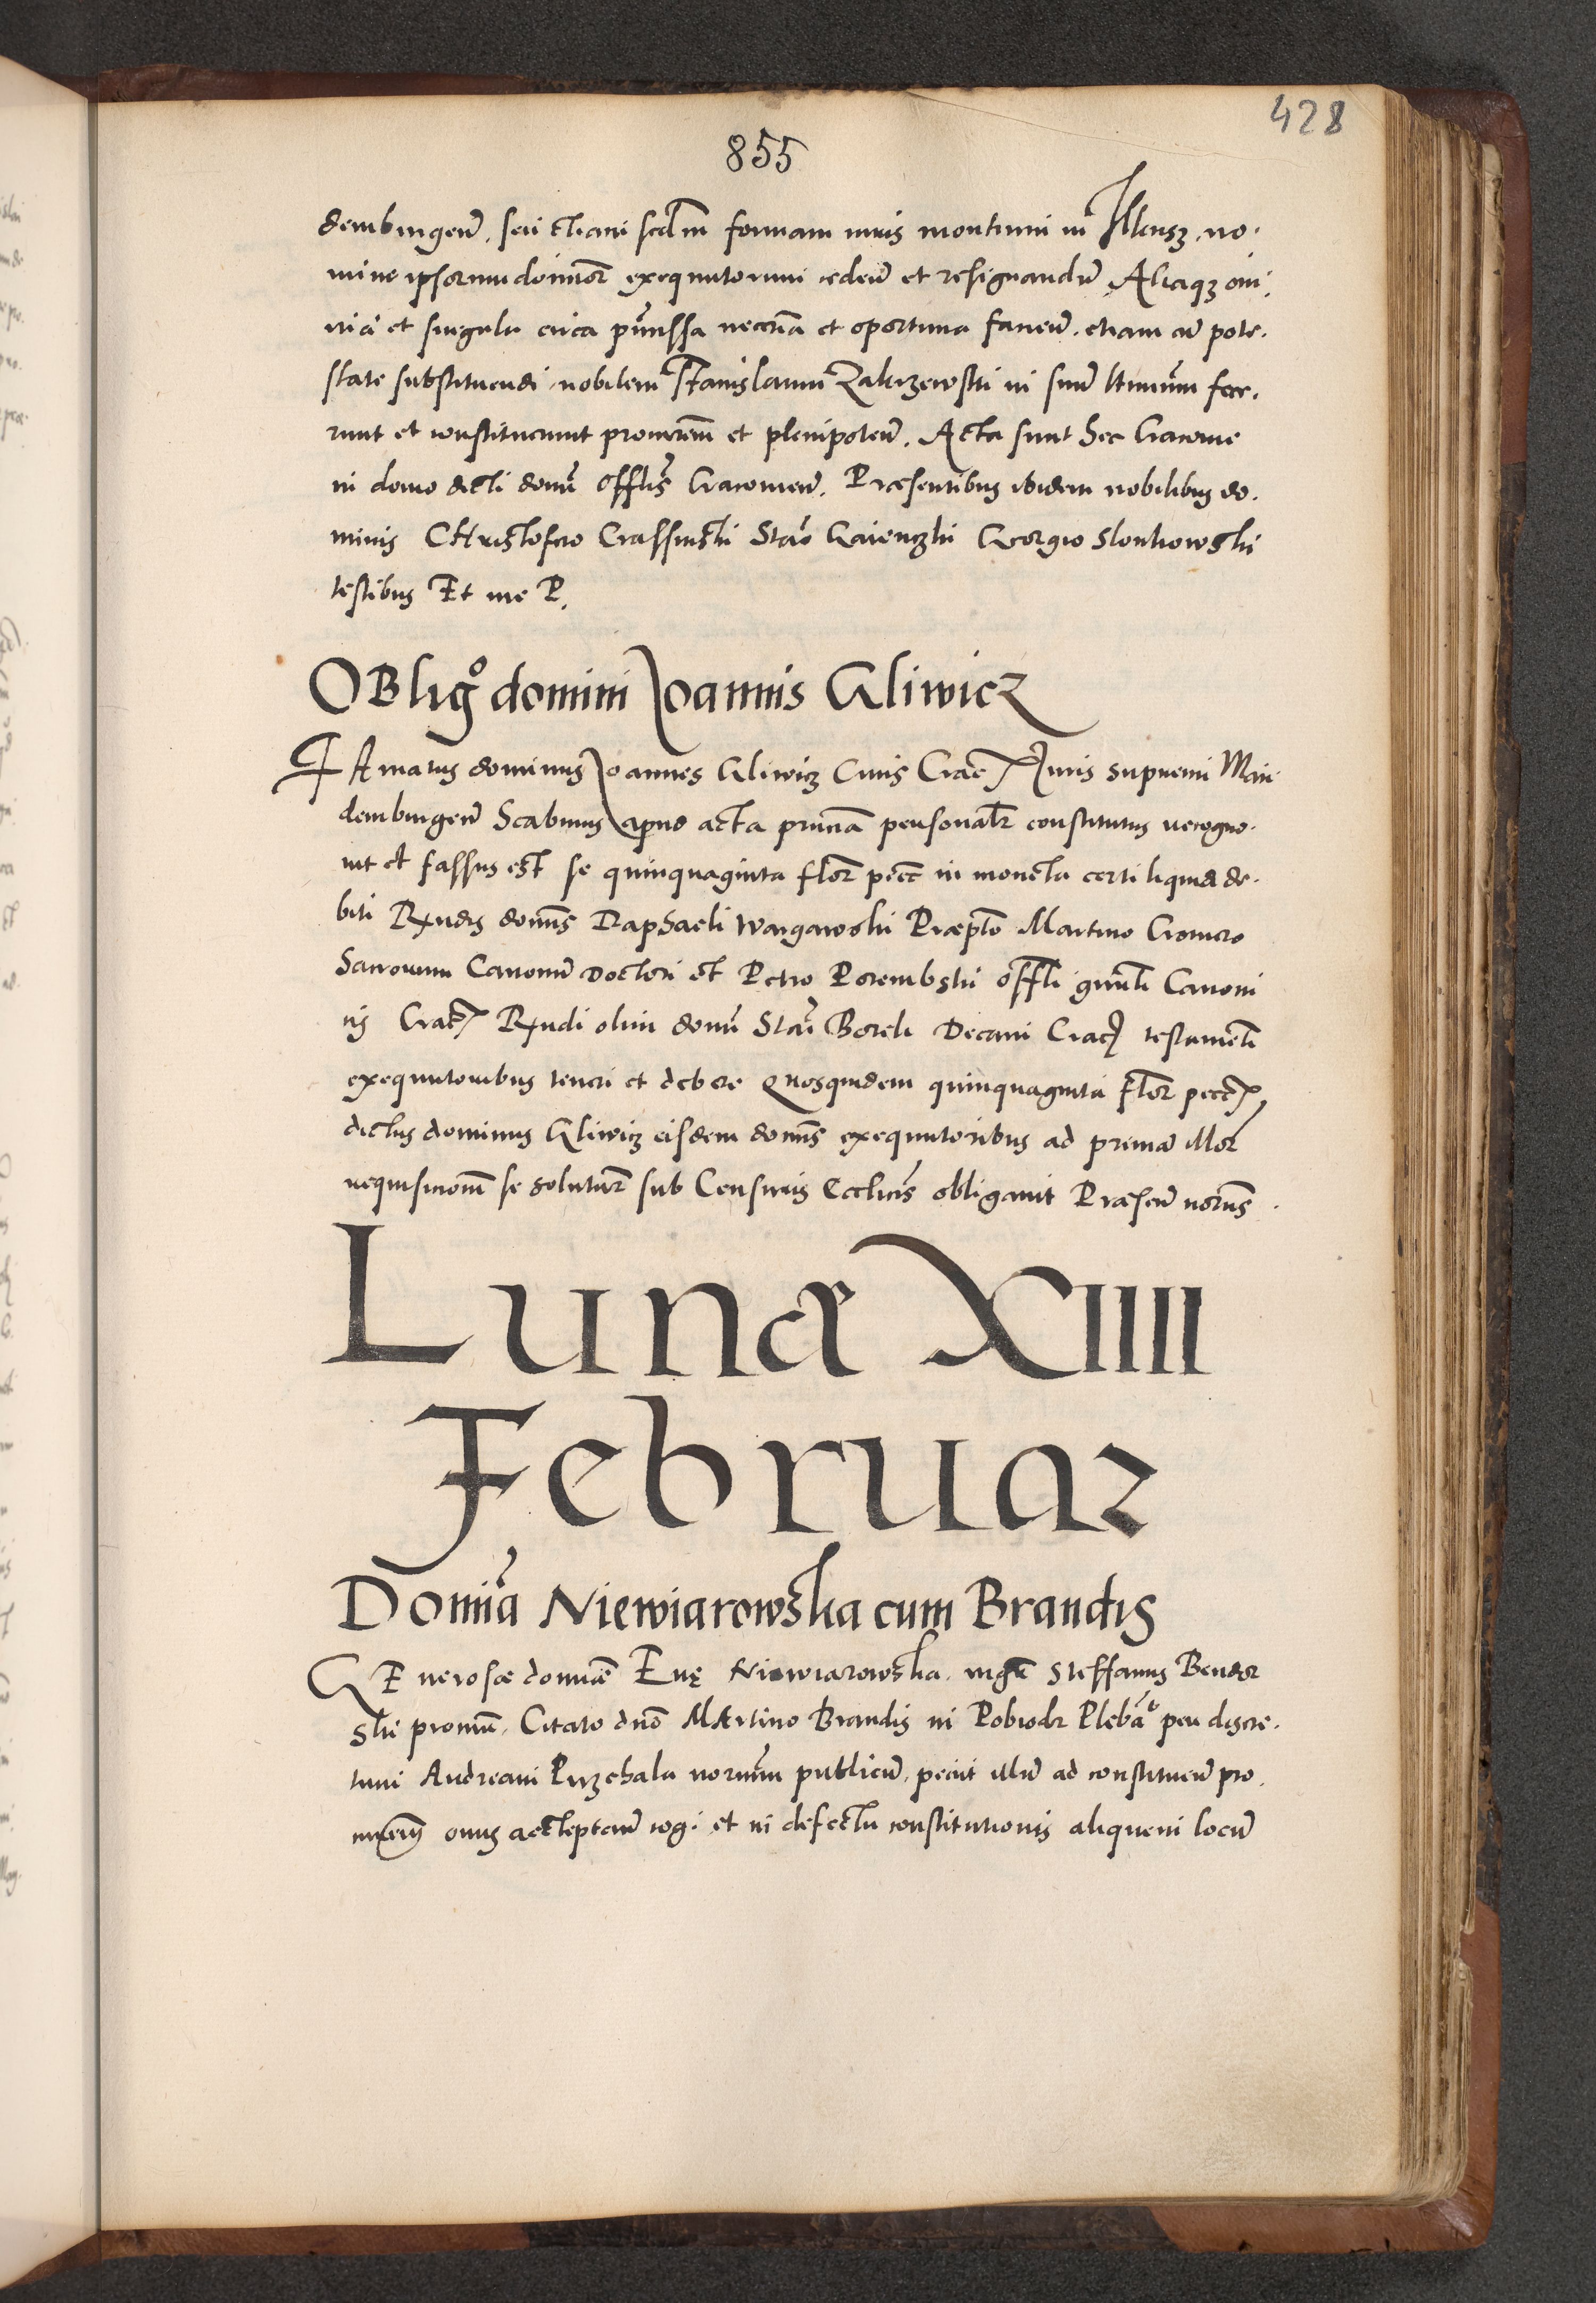 428
855
dembingeñ. seu etiam scdm formam iuris montium in Ilkusz, no.
mine ipsorum domior exequutorum cedeñ et resignandũ, Aliaqz om.
nia et singula circa pmissa neccria et oportuna facieñ. etiam cũ pote.
state substituendi, nobilem Stanislaum Zakrzewski in suũ ltimum fece.
runt et constituerunt procurem et plenipoteñ. Acta sunt hec Cracovie
in domo dicti domi offlis Cracovieñ. Præsentibus ibidem nobilibus do.
minis CHristofero Crassinski Stao Gaienczki Georgio Slonkowski
testibus Et me P.
OBligo domini Joannis Gliwicz
FAmatus dominus Joannes Gliwicz Civis Crac Juris supremi Mai
demburgeñ Scabinus apud acta prñcia personalr constitutus recogno.
vit et fassus est se quinquaginta flor pecc in moneta certi liquidi de.
biti Rndis domis Raphaeli Wargawski Præpto Martino Cromero
Sacrorum Canonũ Doctori et Petro Porembski offli gnali Canoni
cis Crac Rndi olim domi Stai Borek Decani Crac testamenti
exequutoribus teneri et debere Quosquidem quinquaginta flor pecc
dictus dominus Gliwicz eisdem domis exequutoribus ad primã illor
requisicionem se soluturũ sub Censuris Ecclicis obligavit Præseñ notis.
Lunæ XIIII
Februar
Domina Niewiarowska cum Brandis
GEnerosæ domnæ Evę Niewiarowska. mgr Steffanus Bendor
ski procur. Citato dno Martino Brandis in Pobiedr Plebão per discre.
tum Andream Przechala notarium publicũ, peciit illũ ad constitueñ pro.
curem onus accepteñ cogi. et in defectu constitutionis aliquem locũ